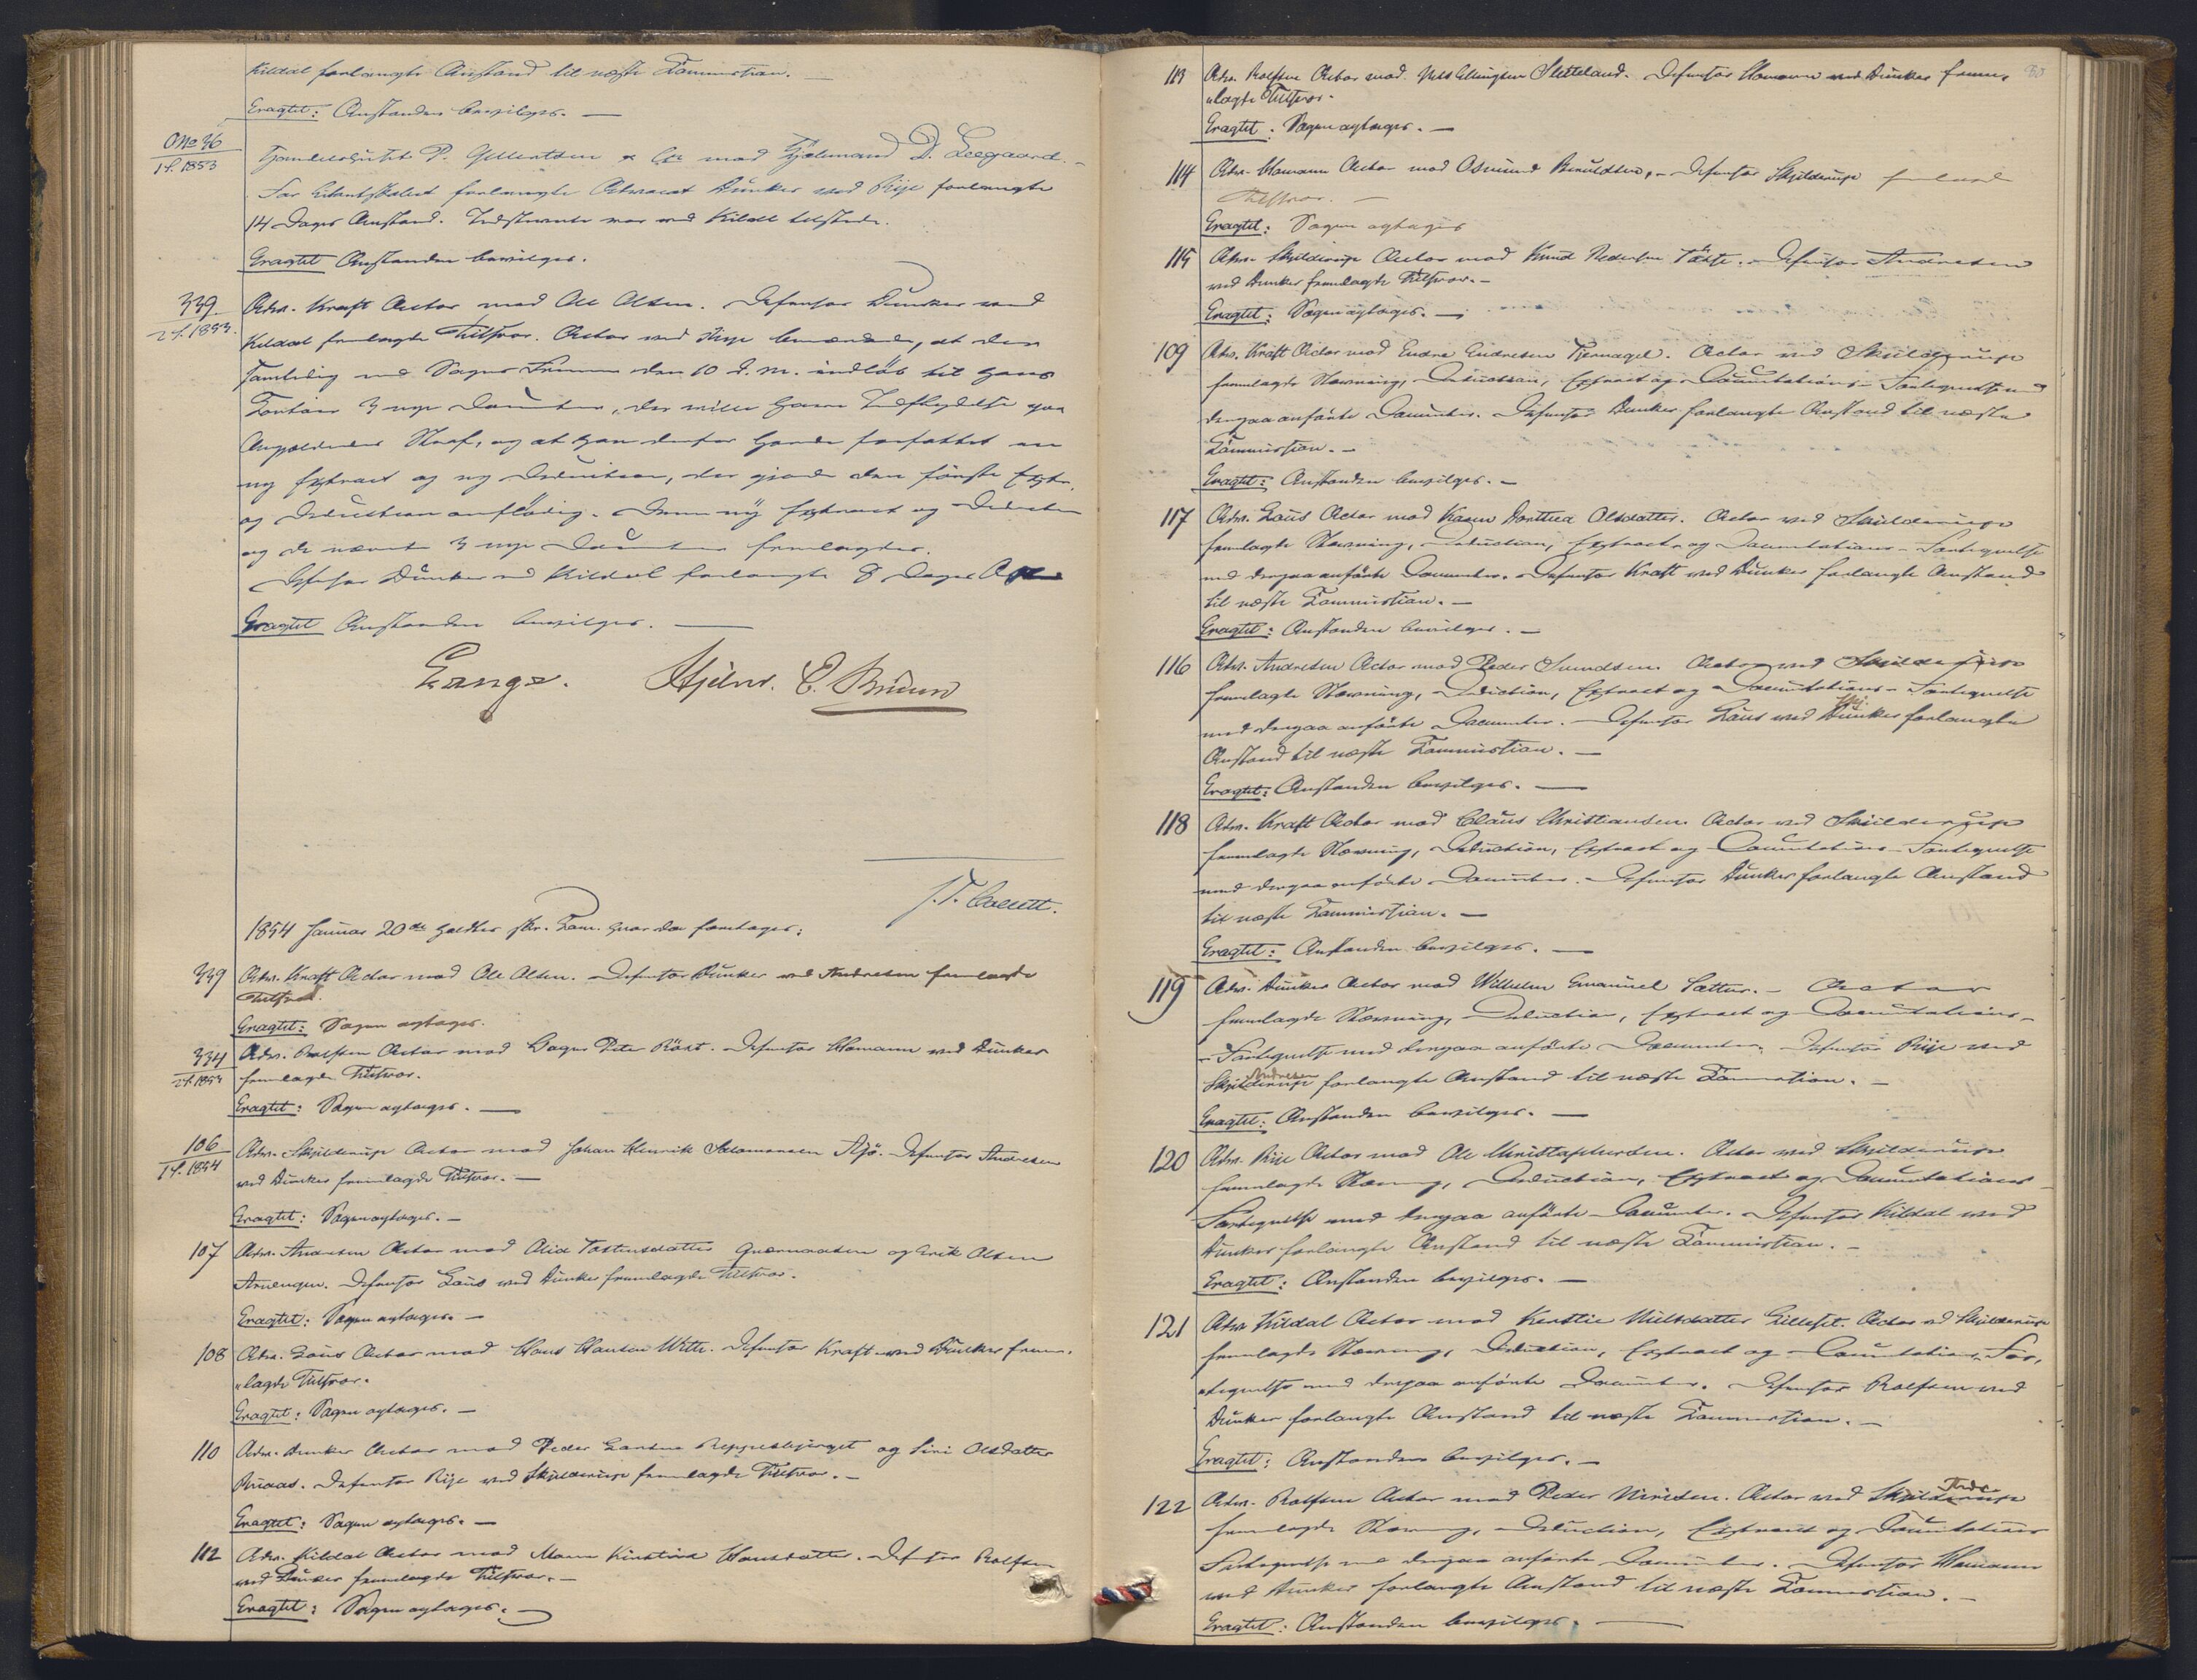 Kildal forlangte Anstand til næste Tammerstian. —
Eragtet: Anstanden bevilges. —
No 36
1 f. 1853
Handelshuset P. & Co mod Hjelmand D. Leegaard. —
For Citantskabet Advocat Dunker ved Rije forlangte
14 Dages Anstand. Indstevnte var ved Kildal tilstede.
Eragtet Anstanden bevilges.
339
2 f. 1853.
Adv. Kraft Actor mod Ole Olsen. Defensor Dunker ved
Kildal fremlagde Tilsvar. Actor ved Rije bemærkede, at der
samtidig med Sagens den 10 d. M. indløb til hans
Contoir 3 nye Documenter, der ville have Indflydelse paa
Angjældendes Straf, og at han derfor havde forfattet en
ny Extract og ny Deduction, der gjorde den første Extr.
og Deduction overflødig. Denne ny Extract og Deduction
og de nævnte 3 nye Documenter fremlagdes.
Defensor Dunker ved Kildal forlangte 8 Dages
Eragtet Anstanden bevilges. —
Lange. Hjelm. C. Bruun
J. Collett.
1854 Januar 20de holdtes hvor da foretoges:
339 Adv. Kraft Actor mod Ole Olsen. Defensor Dunker ved Andresen fremlagde
Tilsvar.
Eragtet: Sagen optages.
334
2 f. 1853
Adv. Rolfsen Actor mod Peter Röst. Defensor Homann ved Dunker
fremlagde Tilsvar.
Eragtet: Sagen optages. —
106
1 f. 1854
Adv. Skjilderup Actor mod Johan Henrik Salomonsen Defensor Andresen
ved Dunker fremlagde Tilsvar. —
Eragtet: Sagen optages. —
107 Adv. Andresen Actor mod Olia Tostensdatter og Erik Olsen
Defensor Laus ved Dunker fremlagde Tilsvar.
Eragtet: Sagen optages. —
108 Adv. Laus Actor mod Hans Hansen With. Defensor Kraft ved Dunker frem-
„lagde Tilsvar.
Eragtet: Sagen optages. —
110 Adv. Dunker Actor mod Peder Larsen og Siri Olsdatter
Ruaas. Defensor Rije ved Skjilderup fremlagde Tilsvar. —
Eragtet: Sagen optages. —
112 Adv. Kildal Actor mod Maren Kirstine Hansdatter. Defensor Rolfsen
ved Dunker fremlagde Tilsvar. —
Eragtet: Sagen optages. —
80
113 Adv. Rolfsen Actor mod Nils Ellingsen Sletteland. Defensor Homann ved Dunker frem-
„lagde Tilsvar.
Eragtet: Sagen optages. —
114 Adv. Homann Actor mod Osmund Defensor Skjilderup fremlagde
Tilsvar. —
Eragtet: Sagen optages
115 Adv. Skjilderup Actor mod Knud Pedersen Defensor Andresen
ved Dunker fremlagde Tilsvar. —
Eragtet: Sagen optages. —
109 Adv. Kraft Actor mod Endre Endresen Actor ved Skjilderup
fremlagde Stævning, Deduction, Extract og Documentations-Fortegnelse med
derpaa anførte Documenter. Defensor Dunker forlangte Anstand til næste
Tammerstian. —
Eragtet: Anstanden bevilges. —
117 Adv. Laus Actor mod Karen Dorthea Olsdatter. Actor ved Skjilderup
fremlagde Stævning, Deduction, Extract og Documentations-Fortegnelse
med derpaa anførte Documenter. Defensor Kraft ved Dunker forlangte Anstand
til næste Tammerstian. —
Eragtet: Anstanden bevilges. —
116 Adv. Andresen Actor mod Peder Actor ved Skjilderup
fremlagde Stævning, Deduction, Extract og Documentations-Fortegnelse
med derpaa anførte Documenter. — Defensor Laus ved Dunker forlangte
Anstand til næste Tammerstian. —
Eragtet: Anstanden bevilges. —
118 Adv. Kraft Actor mod Claus Christiansen. Actor ved Skjilderup
fremlagde Stævning, Deduction, Extract og Documentations-Fortegnelse
med derpaa anførte Documenter. Defensor Dunker forlangte Anstand
til næste Tammerstian. —
Eragtet: Anstanden bevilges. —
119 Adv. Dunker Actor mod Wilhelm Emanuel — Actor
fremlagde Stævning, Deduction, Extract og Documentations-
Fortegnelse med derpaa anførte Documenter. Defensor Rije ved
Andresen
Skjilderup forlangte Anstand til næste Tamerstian. —
Eragtet: Anstanden bevilges. —
120 Adv. Rije Actor mod Ole Christophersen. Actor ved Skjilderup
fremlagde Stævning, Deduction, Extract og Documentations-
Fortegnelse med derpaa anførte Documenter. Defensor Kildal ved
Dunker forlangte Anstand til næste Tammerstian. —
Eragtet: Anstanden bevilges. —
121 Adv. Kildal Actor mod Kerstie Nilsdatter Actor ved Skjilderup
fremlagde Stævning, Deduction, Extract og Documentations-For-
„tegnelse med derpaa anførte Documenter. Defensor Rolfsen ved
Dunker forlangte Anstand til næste Tammerstian. —
Eragtet: Anstanden bevilges. —
122 Adv. Rolfsen Actor mod Peder Actor ved Skjilderup
fremlagde Stævning, Deduction, Extract og Documentations
Fortegnelse med derpaa anførte Documenter. Defensor Homann
ved Dunker forlangte Anstand til næste Tammerstian. —
Eragtet: Anstanden bevilges. —